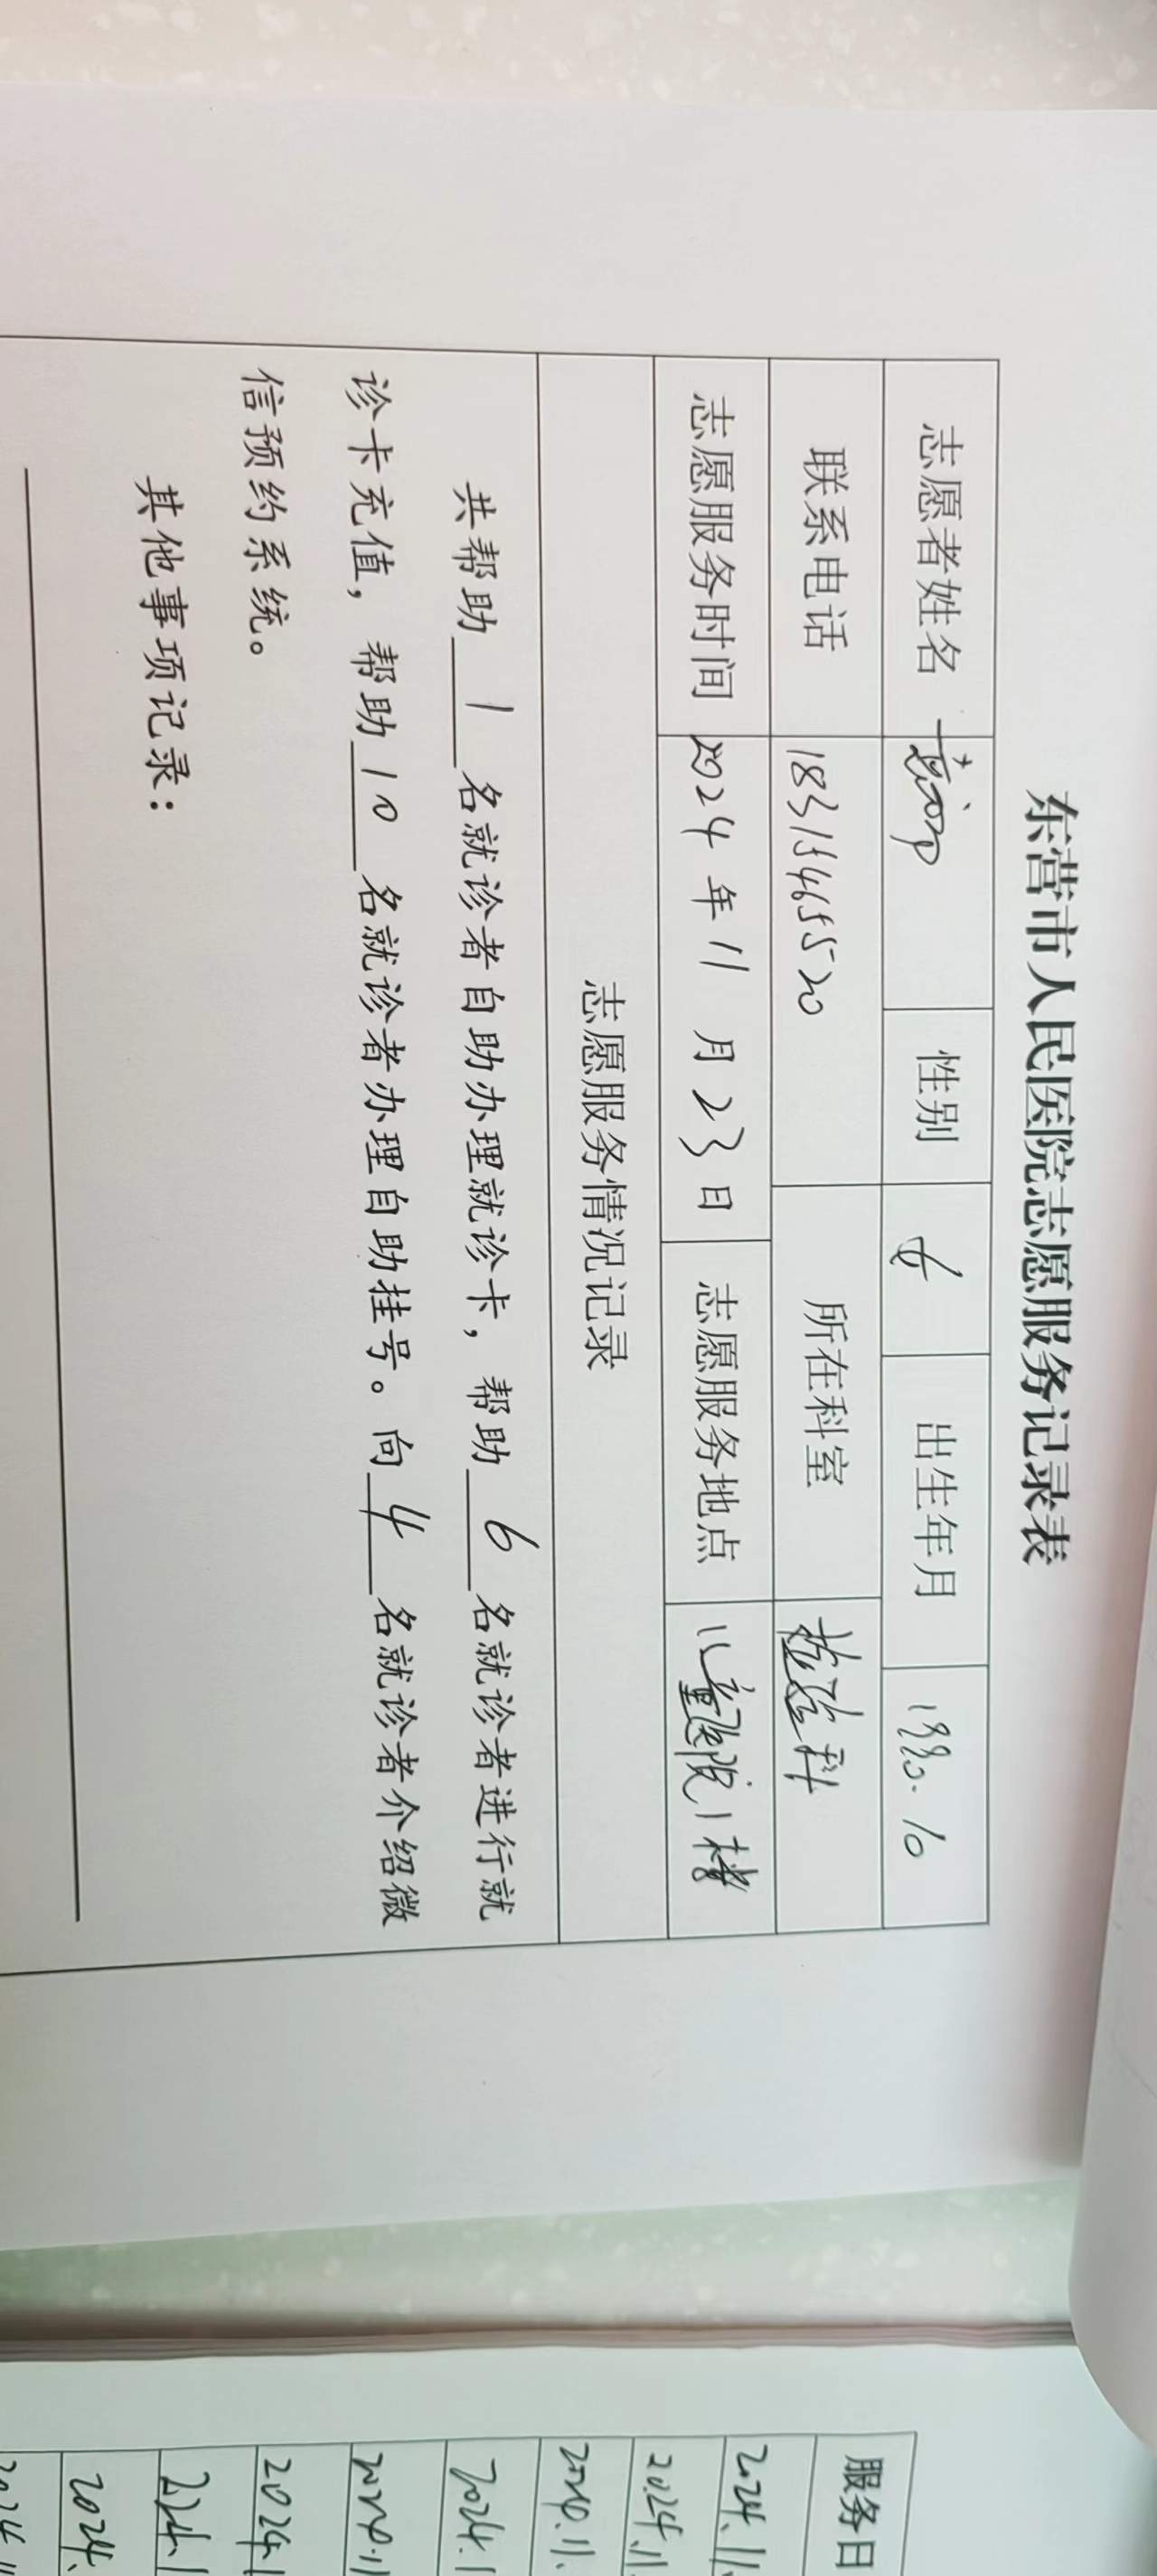 东营市人民医院志愿服务记录表
志愿者姓名 性别 女 出生年月 1990.10
联系电话 18315465520 所在科室 检验科
志愿服务时间 2024年11月23日 志愿服务地点 儿童医院1楼
志愿服务情况记录
共帮助 1 名就诊者自助办理就诊卡，帮助 6 名就诊者进行就
诊卡充值，帮助 10 名就诊者办理自助挂号。向 4 名就诊者介绍微
信预约系统。
其他事项记录：
服务日
2024.11
2024.11
2024.11.
2024.1
2024.11
2024.1
2024.1
2024.
2024.11